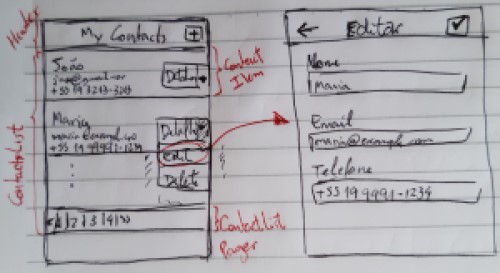 Header
My Contacts +
João
+55 19 1213-3203
Contact
Item
Maria
maria@example.co
+55 19 99991-1234
Edit
Delete
ContactsList
1 2 3 4
ContactList
Pager
← Editar
Nome
Maria
Email
maria@example.com
Telefone
+55 19 9991-1234